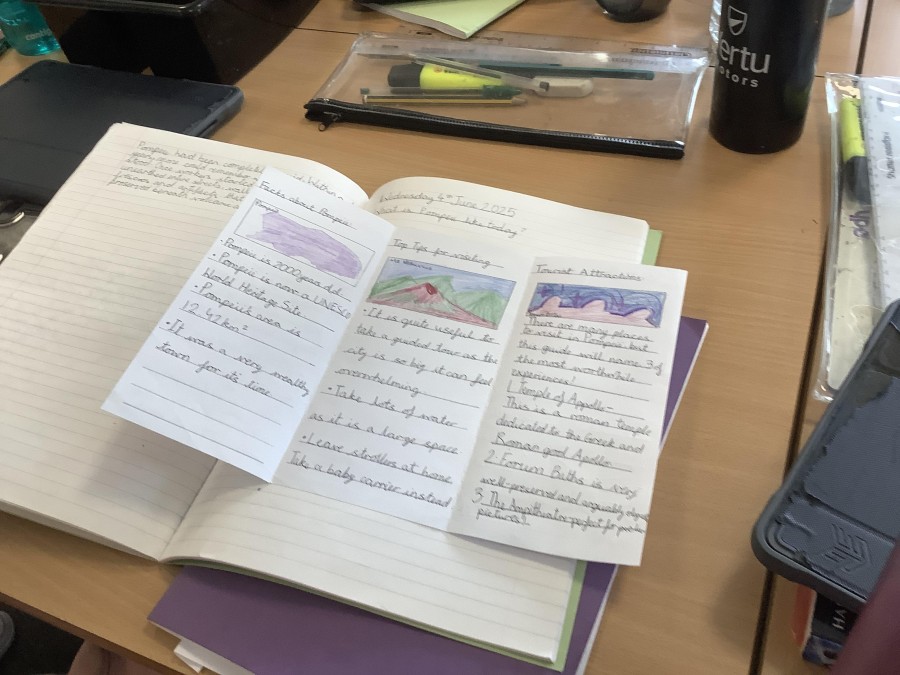 Pompeii had been complete
years, more could remember
stood. Few workers started
Wednesday 4th June 2025
What is Pompeii like today?
Facts about Pompeii
Pompeii
• Pompeii is 2000 years old
• Pompeii is now a UNESCO
World Heritage Site
• Pompeii's area is
12.42 km²
• It was a very wealthy
town for its' time
Top Tips for visiting
• It is quite useful to
take a guided tour as the
city is so big it can feel
overwhelming
• Take lots of water
as it is a large space
• Leave strollers at home.
Take a baby carrier instead
Tourist Attractions
There are many places
to visit in Pompeii but
this guide will name 3 of
the most worthwhile
experiences!
1. Temple of Appollo-
This is a roman temple
dedicated to the Greek and
Roman god Apollo
2. Forum Baths is very
well-preserved and arguably
3. The Ampitheatre-perfect for
pictures!
Vertu
motors